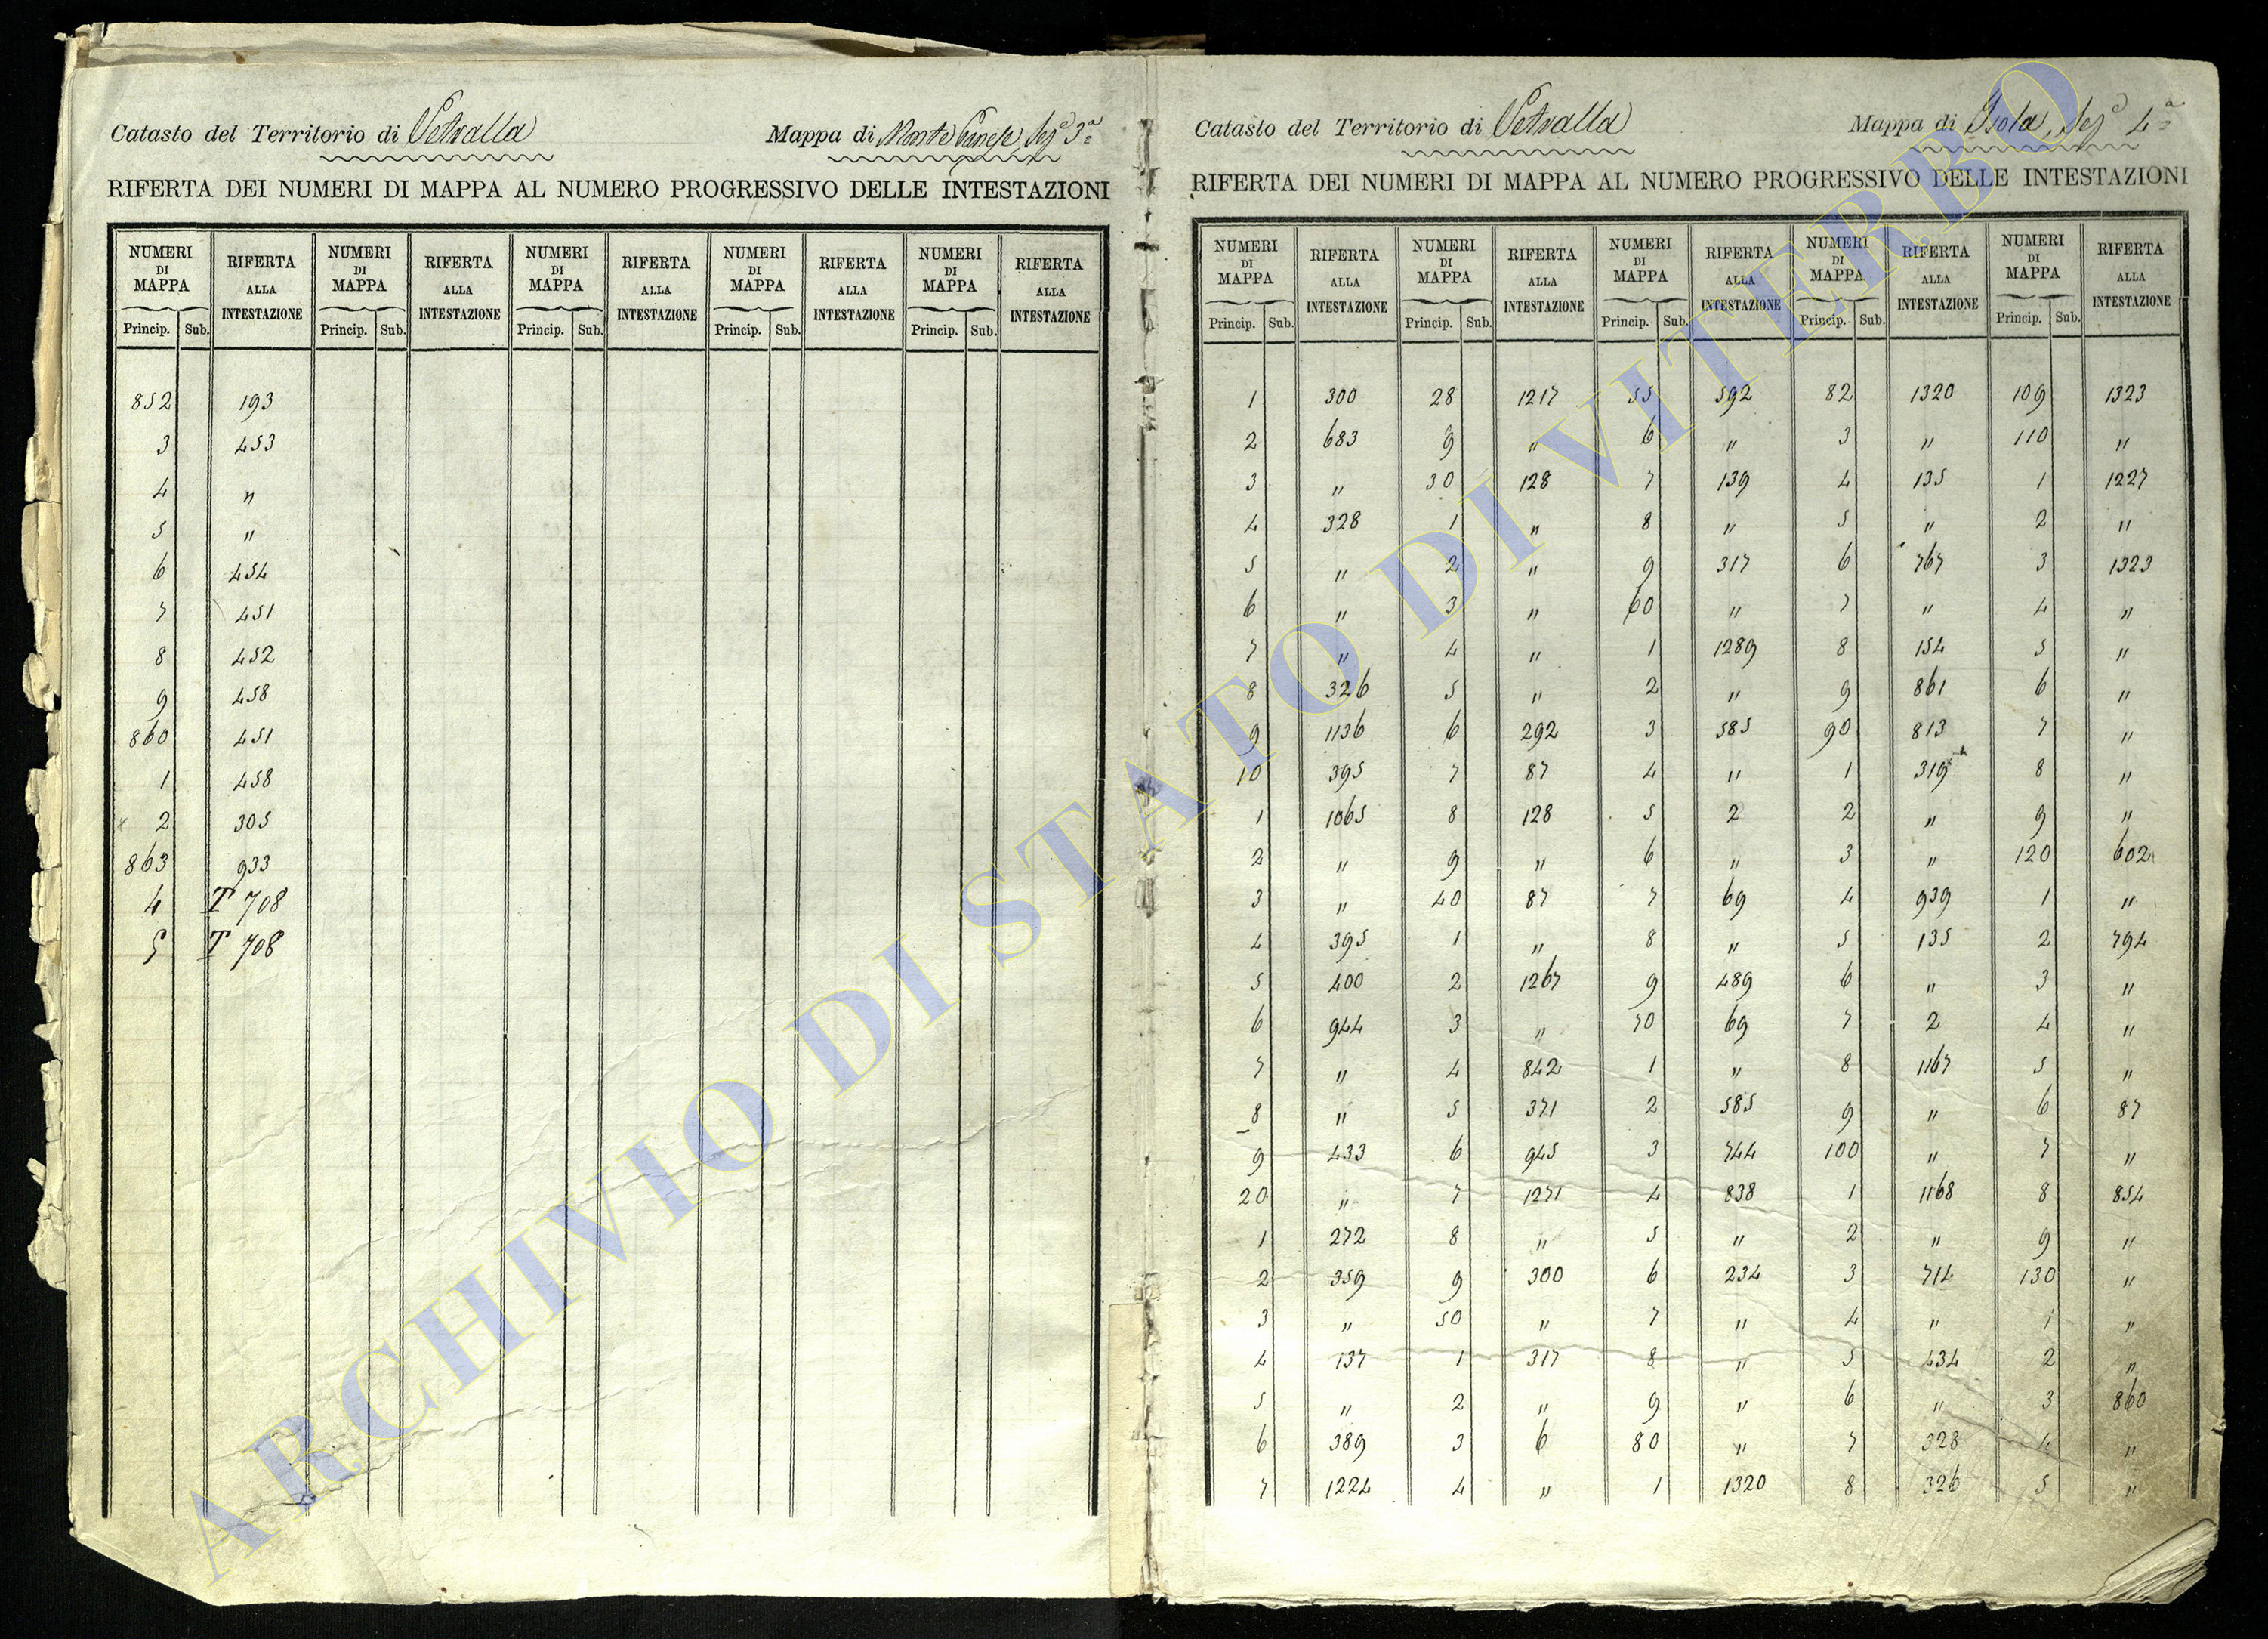 Catasto del Territorio di Vetralla Mappa di Monte Panese Sez.e 3ª
RIFERTA DEI NUMERI DI MAPPA AL NUMERO PROGRESSIVO DELLE INTESTAZIONI
NUMERI DI MAPPA RIFERTA ALLA INTESTAZIONE NUMERI DI MAPPA RIFERTA ALLA INTESTAZIONE NUMERI DI MAPPA RIFERTA ALLA INTESTAZIONE NUMERI DI MAPPA RIFERTA ALLA INTESTAZIONE NUMERI DI MAPPA RIFERTA ALLA INTESTAZIONE
Princip. Sub. Princip. Sub. Princip. Sub. Princip. Sub. Princip. Sub.
852 193
3 453
4 "
5 "
6 454
7 451
8 452
9 458
860 451
1 458
2 305
863 933
4 T 708
5 T 708
Catasto del Territorio di Vetralla Mappa di Isola, Sez.e 4ª
RIFERTA DEI NUMERI DI MAPPA AL NUMERO PROGRESSIVO DELLE INTESTAZIONI
NUMERI DI MAPPA RIFERTA ALLA INTESTAZIONE NUMERI DI MAPPA RIFERTA ALLA INTESTAZIONE NUMERI DI MAPPA RIFERTA ALLA INTESTAZIONE NUMERI DI MAPPA RIFERTA ALLA INTESTAZIONE NUMERI DI MAPPA RIFERTA ALLA INTESTAZIONE
Princip. Sub. Princip. Sub. Princip. Sub. Princip. Sub. Princip. Sub.
1 300 28 1217 55 592 82 1320 109 1323
2 683 9 " 6 " 3 " 110 "
3 " 30 128 7 139 4 135 1 1227
4 328 1 " 8 " 5 " 2 "
5 " 2 " 9 317 6 767 3 1323
6 " 3 " 60 " 7 " 4 "
7 " 4 " 1 1289 8 154 5 "
8 326 5 " 2 " 9 861 6 "
9 1136 6 292 3 585 90 813 7 "
10 395 7 87 4 " 1 319 8 "
1 1065 8 128 5 2 2 " 9 "
2 " 9 " 6 " 3 " 120 602
3 " 40 87 7 69 4 939 1 "
4 395 1 " 8 " 5 135 2 794
5 400 2 1267 9 489 6 " 3 "
6 944 3 " 70 69 7 2 4 "
7 " 4 842 1 " 8 1167 5 "
8 " 5 371 2 585 9 " 6 87
9 433 6 945 3 744 100 " 7 "
20 " 7 1271 4 838 1 1168 8 854
1 272 8 " 5 " 2 " 9 "
2 359 9 300 6 234 3 714 130 "
3 " 50 " 7 " 4 " 1 "
4 137 1 317 8 " 5 434 2 "
5 " 2 " 9 " 6 " 3 860
6 389 3 6 80 " 7 328 4 "
7 1224 4 " 1 1320 8 326 5 "
ARCHIVIO DI STATO DI VITERBO